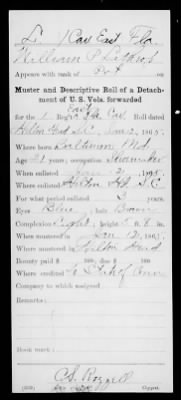 L | 1 Cav. East Fla.
William P
Appears with rank of Pvt on
Muster and Descriptive Roll of a Detach-
ment of U. S. Vols. forwarded
East
for the 1 Reg't Fla Cav. Roll dated
Hilton Head S.C. Jan 12, 1865.
Where born Baltimore Md
Age 21 years; occupation Shoemaker
When enlisted Jan 2, 1865.
Where enlisted Hilton Hd S.C.
For what period enlisted years.
Eyes Blue; hair Brown
Complexion Light; 5 ft. 8 in.
When mustered in Jan 12, 1865.
Where mustered in Hilton Head
Bounty paid $ 100; due $ 100
Where credited
Company to which assigned
Remarks:
Book mark:
(339) Copyist.